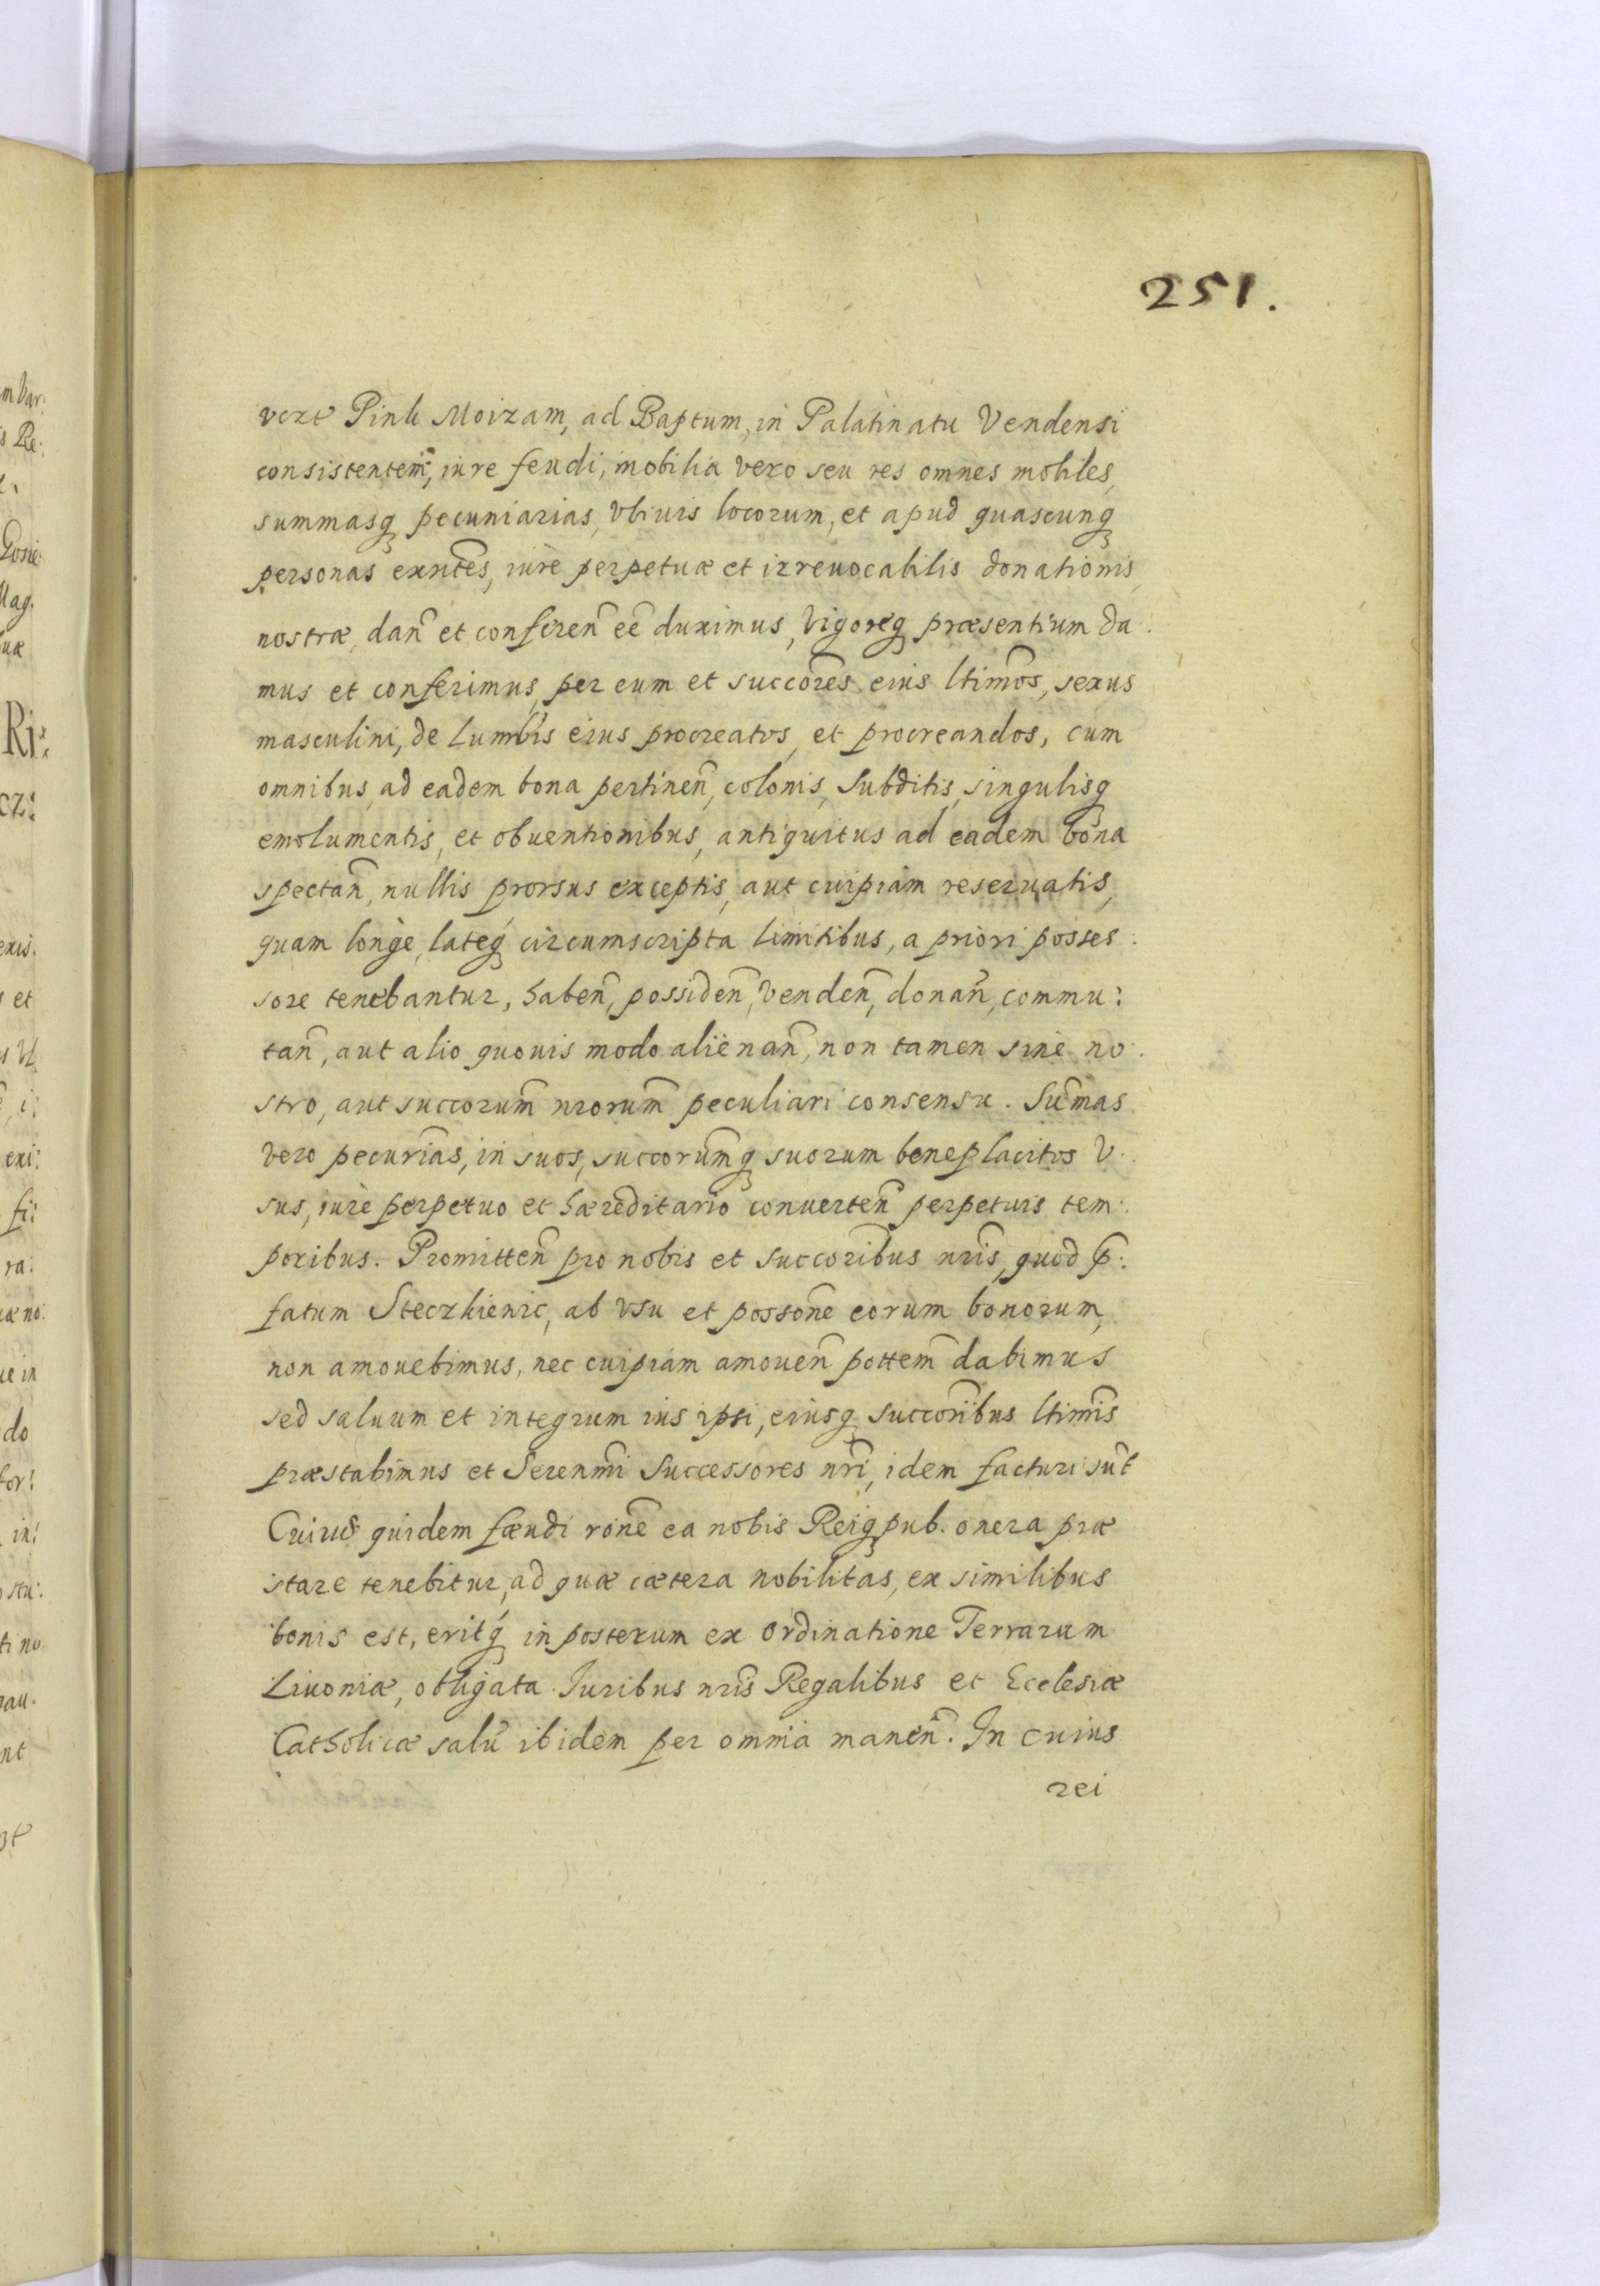 251.
vert Pink Moizam, ad Baptum, in Palatinatu Vendensi
consistentem̃, iure feudi, mobilia vero seu res omnes mobiles,
summasq́ pecuniarias, Vbiuis locorum, et apud quascunq́
personas exñtes, iure perpetuæ et irreuocabilis donationis
nostræ, dañ et confereñ eẽ duximus, Vigoreq́ præsentium da:
mus et conferimus, per eum et succõres eius ltim̃os, sexus
masculini, de Lumbis eius procreatos, et procreandos, cum
omnibus, ad eadem bona pertineñ, colonis, subditis, singulisq́
emolumentis, et obuentionibus, antiquitus ad eadem bona
spectañ, nullis prorsus exceptis, aut cuipiam reseruatis,
quam longè, lateq́ circumscripta limitibus, a priori posses:
sore tenebantur, habeñ, possideñ, Vendeñ, donañ, commu:
tañ, aut alio quouis modo alienañ, non tamen sine no:
stro, aut succorum̃ nrorum̃ peculiari consensu. Sum̃as
vero pecurias̃, in suos, succorum̃q́ suorum beneplacitos V:
sus, iure perpetuo et hæreditario conuerteñ perpetuis tem:
poribus. Promitteñ pro nobis et succorĩbus nrĩs, quod p̃:
fatum Steczkienic, ab vsu et possoñe eorum bonorum,
non amouebimus, nec cuipiam amoueñ pottem̃ dabimus
sed saluum et integrum ius ipsi, eiusq́ succorĩbus ltimĩs
præstabimus et Serenmĩ Successores nrĩ, idem facturi sunt̃
Cuius quidem fæudi roñe ea nobis Reiq́ pub. onera præ
stare tenebitur, ad quæ cætera nobilitas, ex similibus
bonis est, eritq́ in posterum ex ordinatione Terrarum
Liuoniæ, obligata. Juribus nrĩs Regalibus et Ecclesiæ
Catholicæ salũ ibidem per omnia maneñ. In cuius
rei